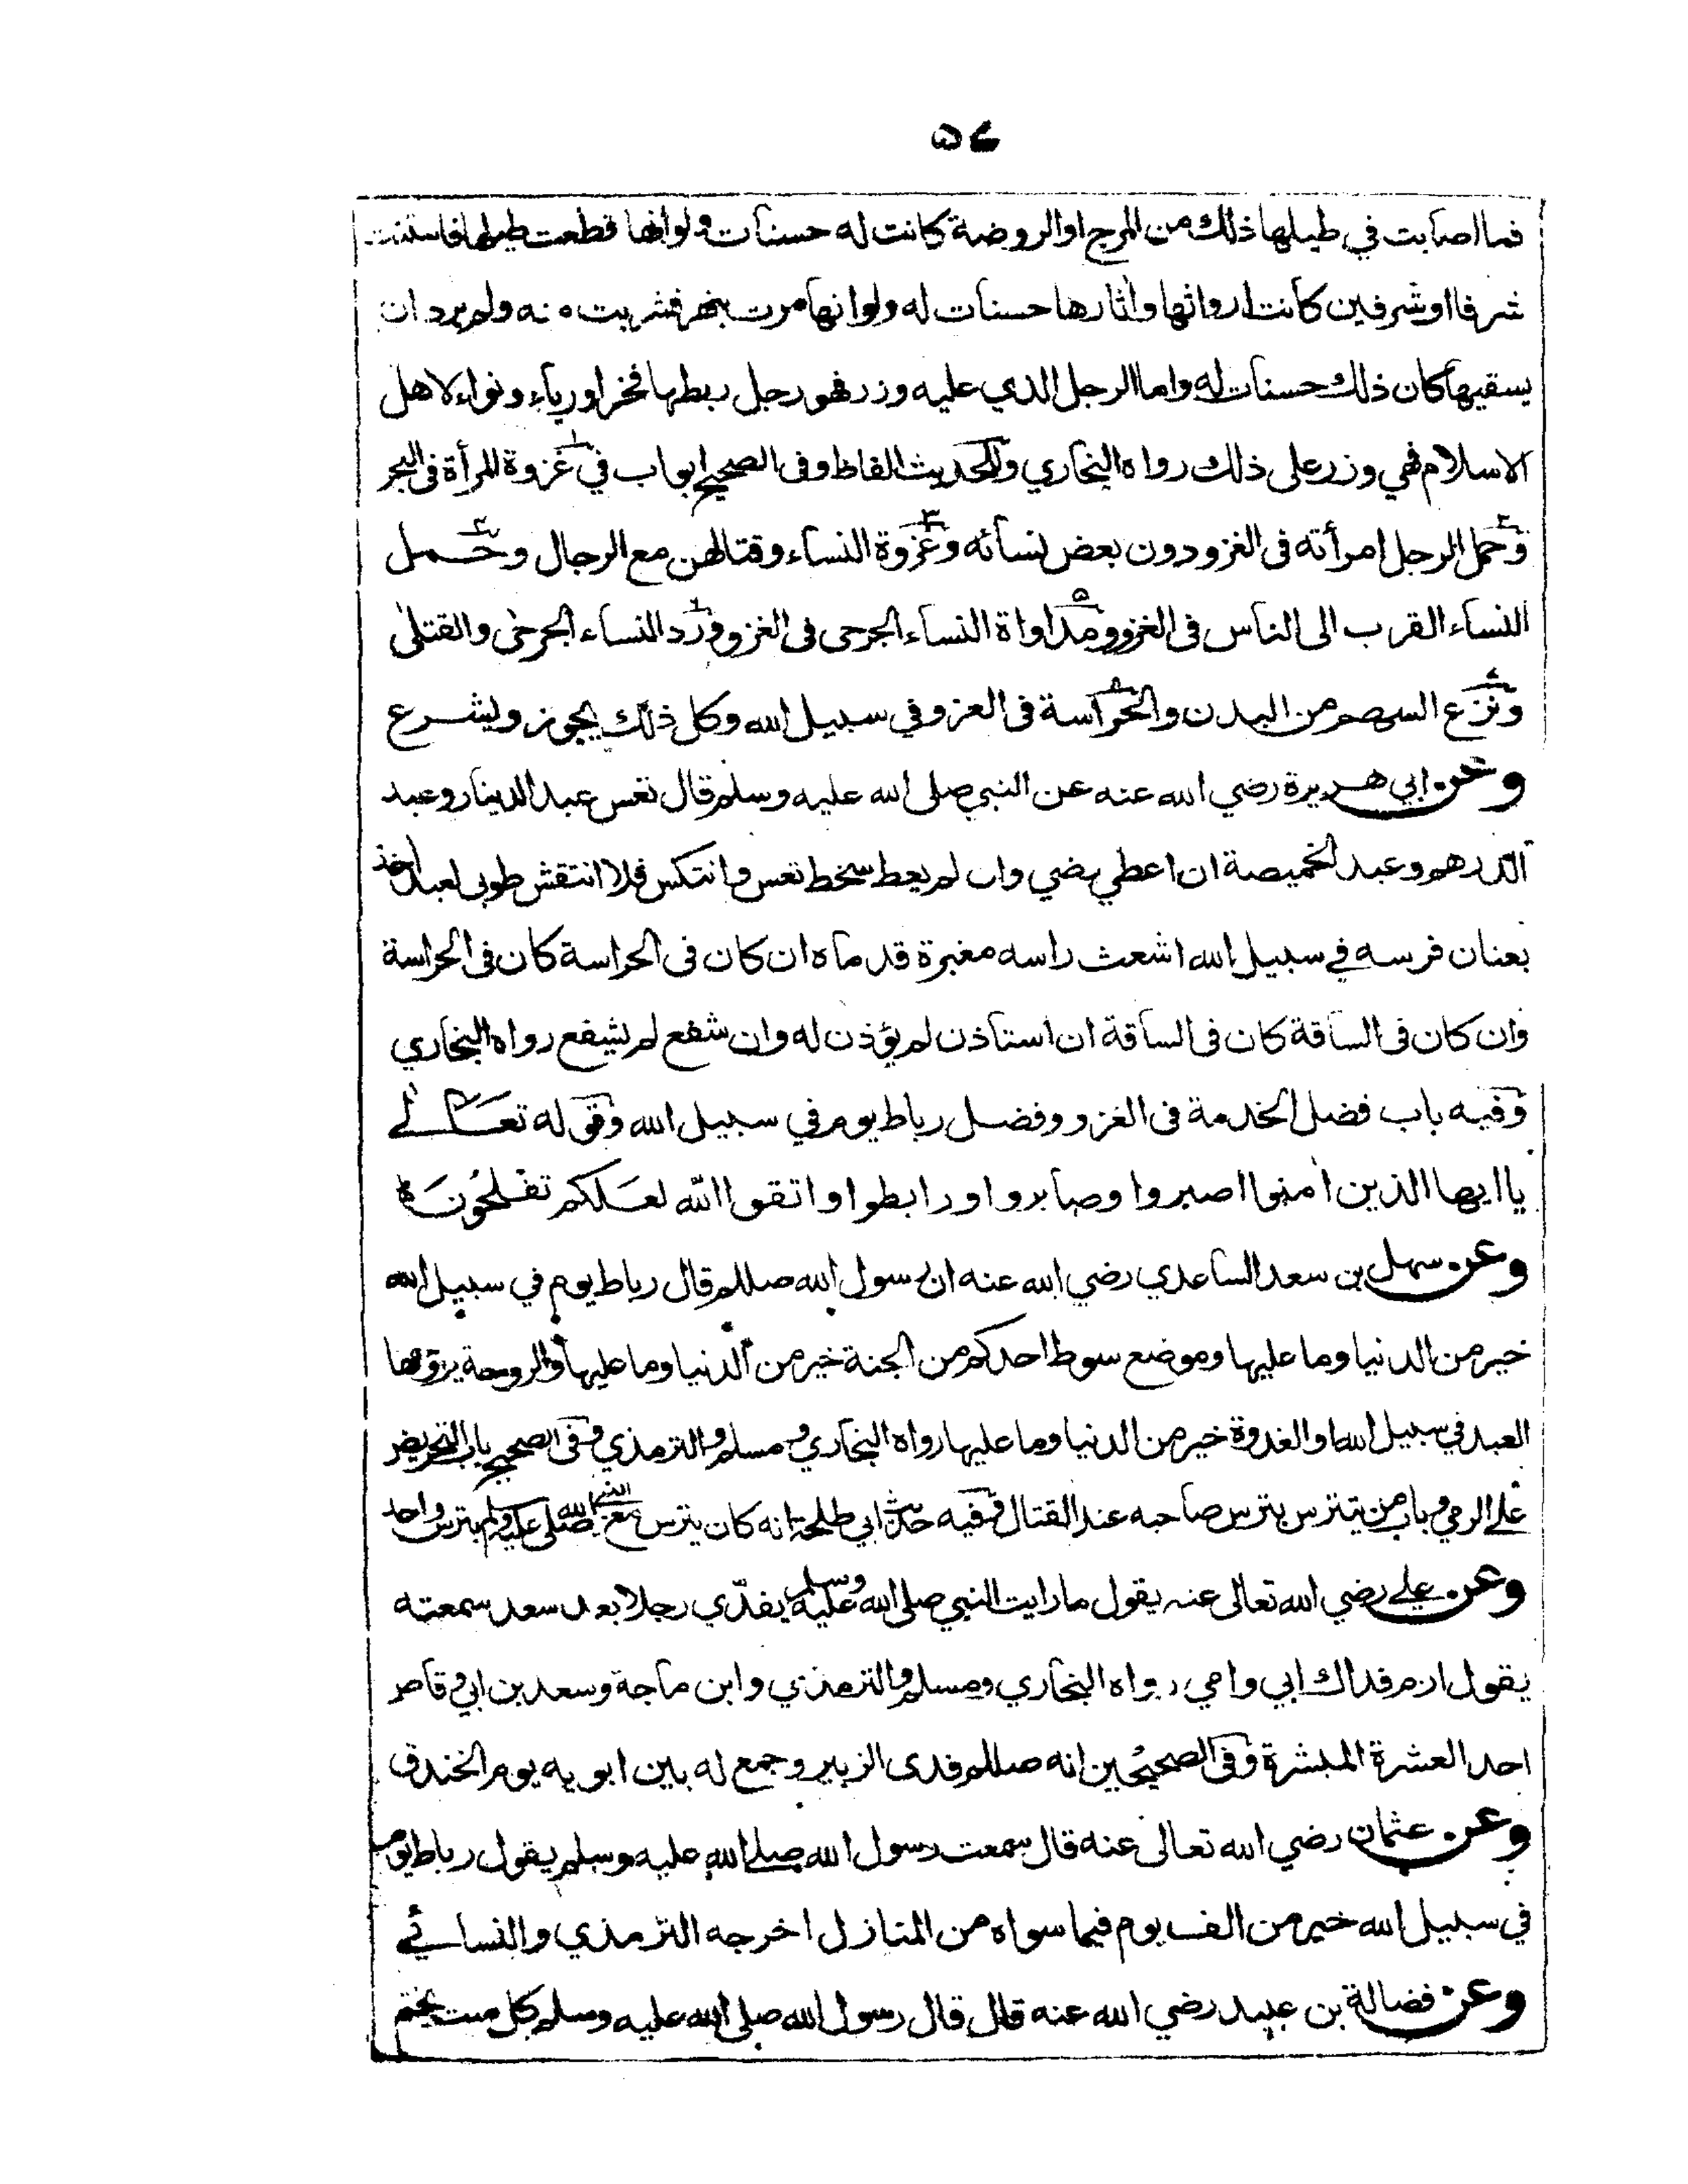 ٥٤
فما اصابت في طيلها ذلك من المرج او الروضة كانت له حسنات ولو انها قطعت طيلها فاستنت
شرفا او شرفين كانت ارواثها وآثارها حسنات له ولو انها مرت بنهر فشربت منه ولم يرد ان
يسقيها كان ذلك حسنات له واما الرجل الذي عليه وزر فهو رجل ربطها فخرا ورياء ونواء لاهل
الاسلام فهي وزر على ذلك رواه البخاري وللحديث الفاظ وفى الصحيح ابواب في غزوة المرأة فى البحر
وحمل الرجل امرأته فى الغزو دون بعض نسائه وغزوة النساء وقتالهن مع الرجال وحمل
النساء القرب الى الناس فى الغزو ومداواة النساء الجرحى فى الغزو ورد النساء الجرحى والقتلى
ونزع السهم من البدن والحراسة فى الغزو وفي سبيل الله وكل ذلك يجوز ويشرع
وعن ابي هريرة رضي الله عنه عن النبي صلى الله عليه وسلم قال تعس عبد الدينار وعبد
الدرهم وعبد الخميصة ان اعطي رضي وان لم يعط سخط تعس وانتكس فلا انتقش طوبى لعبد اخذ
بعنان فرسه في سبيل الله اشعث راسه مغبرة قدماه ان كان فى الحراسة كان فى الحراسة
وان كان فى الساقة كان فى الساقة ان استاذن لم يؤذن له وان شفع لم يشفع رواه البخاري
وفيه باب فضل الخدمة فى الغزو وفضل رباط يوم في سبيل الله وقوله تعالے
يا ايها الذين امنوا اصبروا وصابروا ورابطوا واتقوا الله لعلكم تفلحون
وعن سهل بن سعد الساعدي رضي الله عنه ان رسول الله صللم قال رباط يوم في سبيل الله
خير من الدنيا وما عليها وموضع سوط احدكم من الجنة خير من الدنيا وما عليها والروحة يروحها
العبد في سبيل الله او الغدوة خير من الدنيا وما عليها رواه البخاري ومسلم والترمذي وفى الصحيح باب التحريض
علے الرمي وباب من يتترس بترس صاحبه عند القتال وفيه حديث ابي طلحة انه كان يترس مع النبي صلى الله عليه وسلم بترس واحد
وعن علے رضي الله تعالى عنه يقول ما رايت النبي صلى الله عليه وسلم يفدّي رجلا بعد سعد سمعته
يقول ارم فداك ابي وامي رواه البخاري ومسلم والترمذي وابن ماجة وسعد بن ابي وقاص
احد العشرة المبشرة وفى الصحيحين انه صللم فدى الزبير وجمع له بين ابويه يوم الخندق
وعن عثمان رضي الله تعالى عنه قال سمعت رسول الله صلے الله عليه وسلم يقول رباط يوم
في سبيل الله خير من الف يوم فيما سواه من المنازل اخرجه الترمذي والنسائے
وعن فضالة بن عبيد رضي الله عنه قال قال رسول الله صلى الله عليه وسلم كل ميت يختم